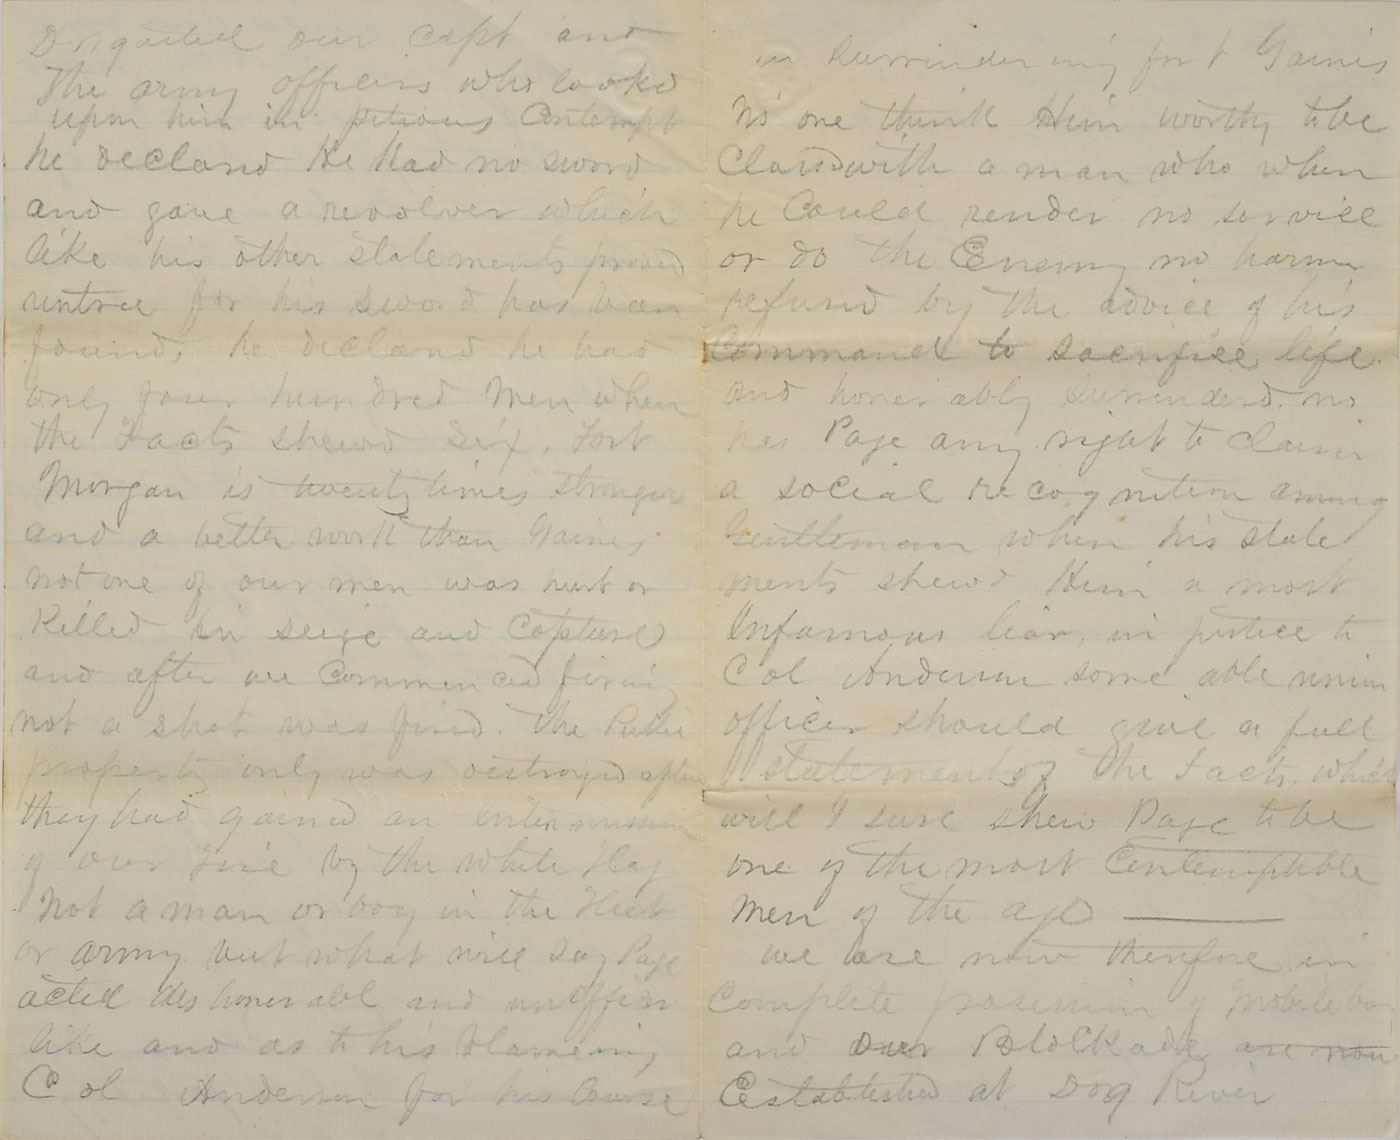 Disgusted our Capt and
the army officers who looked
upon him in piteous Contempt
he declard He Had no sword
and gave a revolver which
like his other statements proved
untrue for his sword has been
found, he declard he had
only four hundred Men when
the Facts shewd Six, Fort
Morgan is twenty times stronger
and a better work than Gaines
not one of our men was hurt or
Killed in seige and Capture
and after we Commenced firing
not a shot was fired. The Public
property only was destroyed after
they had gained an intermission
of our Fire by the white Flag
Not a man or boy in the Fleet
or army but what will say Page
acted dishonerabl and unofficer
like and as to his blameing
Col Anderson for his Course
in Surrendering fort Gaines
No one think Him worthy to be
Classd with a man who when
he Could render no service
or do the Enemy no harm
refusd by the advice of his
Command to sacrifice life
and honerably Surrenderd. no
has Page any right to claim
a social recognition among
Gentleman when his state
ments shewd Him a most
Infamous liar, in justice to
Col Anderson some able union
officer should give a full
statement of the Facts, which
will I sure shew Page to be
one of the most Contemptable
Men of the age
we are now therefore in
Complete possession of Mobile bay
and our Blockade are now
Established at Dog River